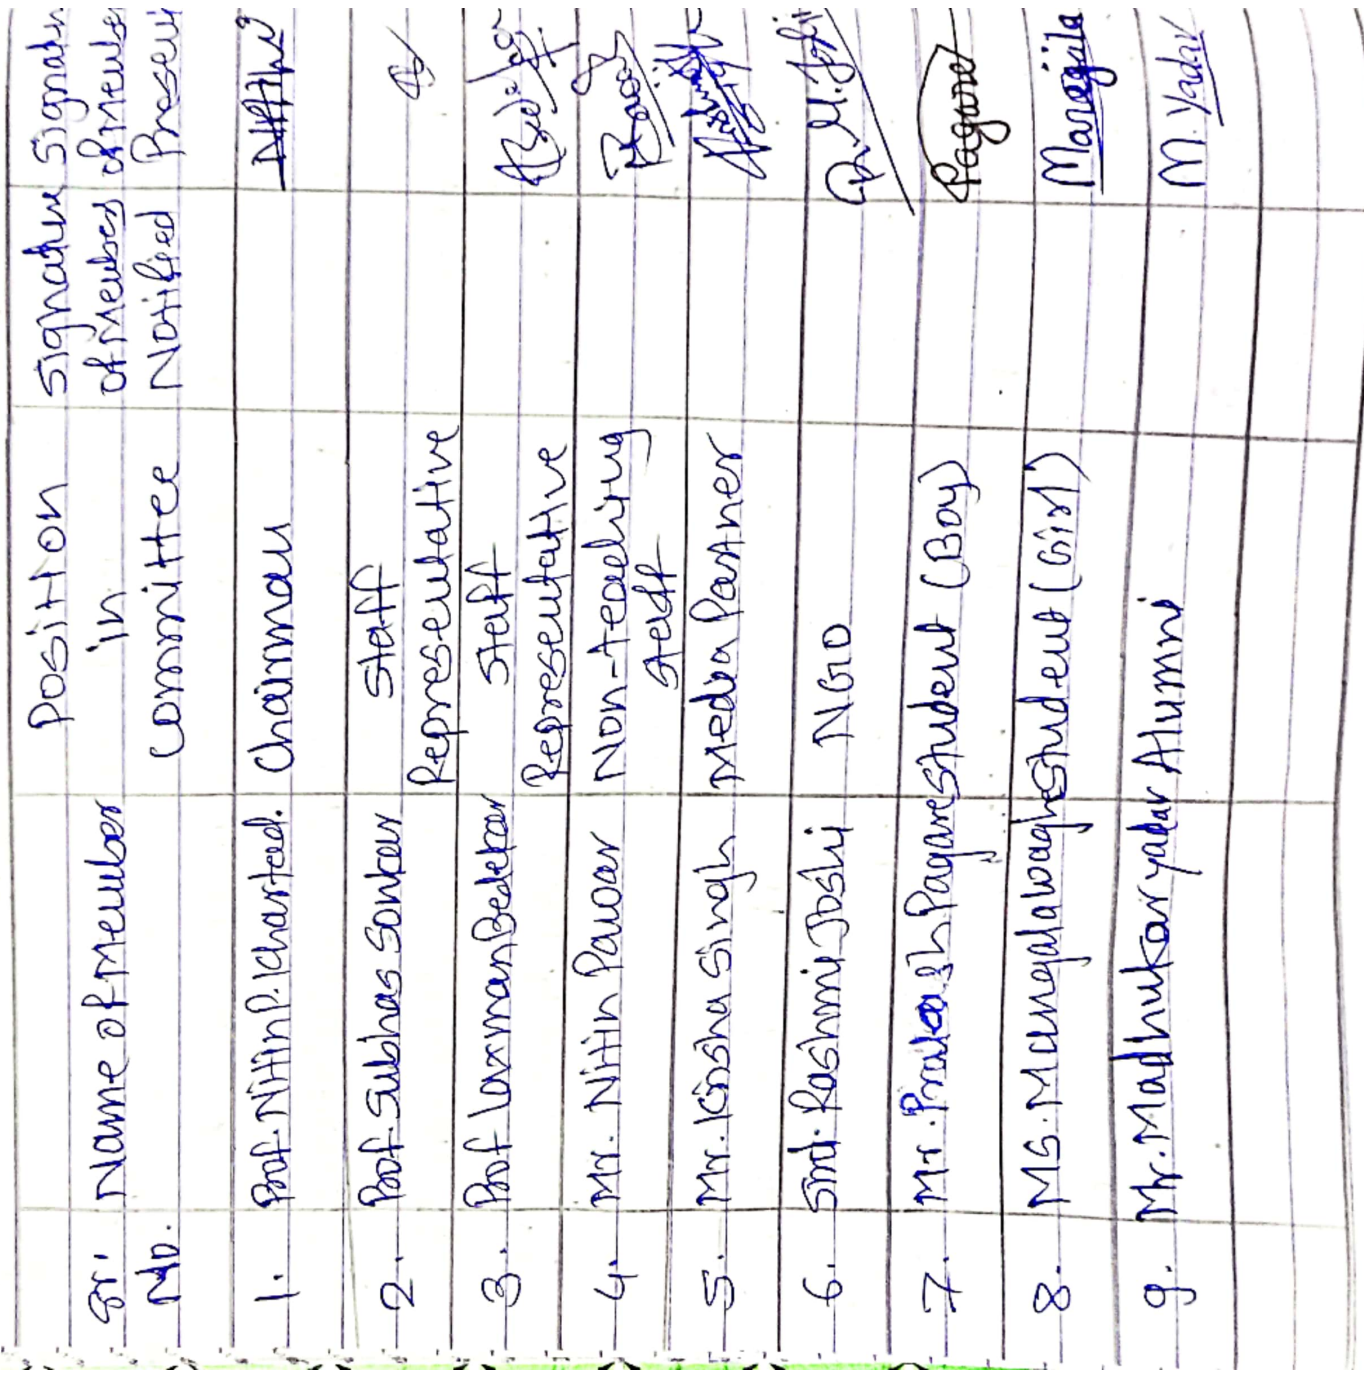 Sr. No. Name of Member Position in Committee Signature of Member Notified Signature of Member Present
1. Prof. Nitin P. Kharted. Chairman
2. Prof. Subhas Sonkar Staff Representative
3. Prof Laxman Bedekar Staff Representative
4. Mr. Nitin Pawar Non-teaching Staff
5. Mr. Krisha Singh Media Partner
6. Smt. Rashmi Joshi NGO R. M. Joshi
7. Mr. Prakash Pagare Student (Boy) Pagare
8. MS. Mangala wagh Student (Girl)
9. Mr. Madhukar yadav Alumni M. Yadav